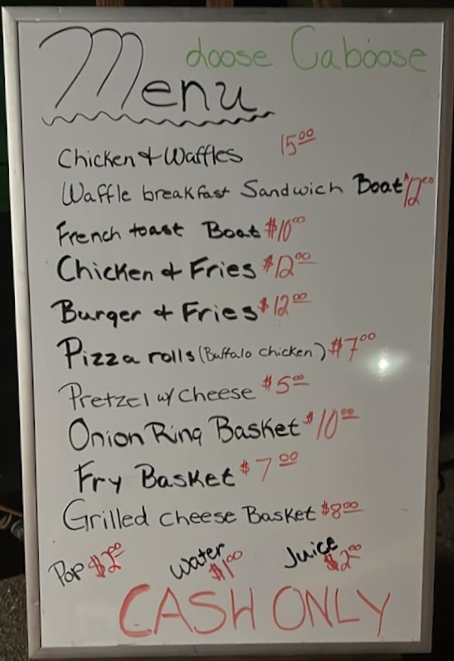 Loose Caboose
Menu
Chicken & Waffles 15.00
Waffle breakfast Sandwich Boat $12.00
French toast Boat $10.00
Chicken & Fries $12.00
Burger & Fries $12.00
Pizza rolls (Buffalo chicken) $7.00
Pretzel w/ cheese $5.00
Onion Ring Basket $10.00
Fry Basket $7.00
Grilled cheese Basket $8.00
Pop $2.00 water $1.00 Juice $2.00
CASH ONLY